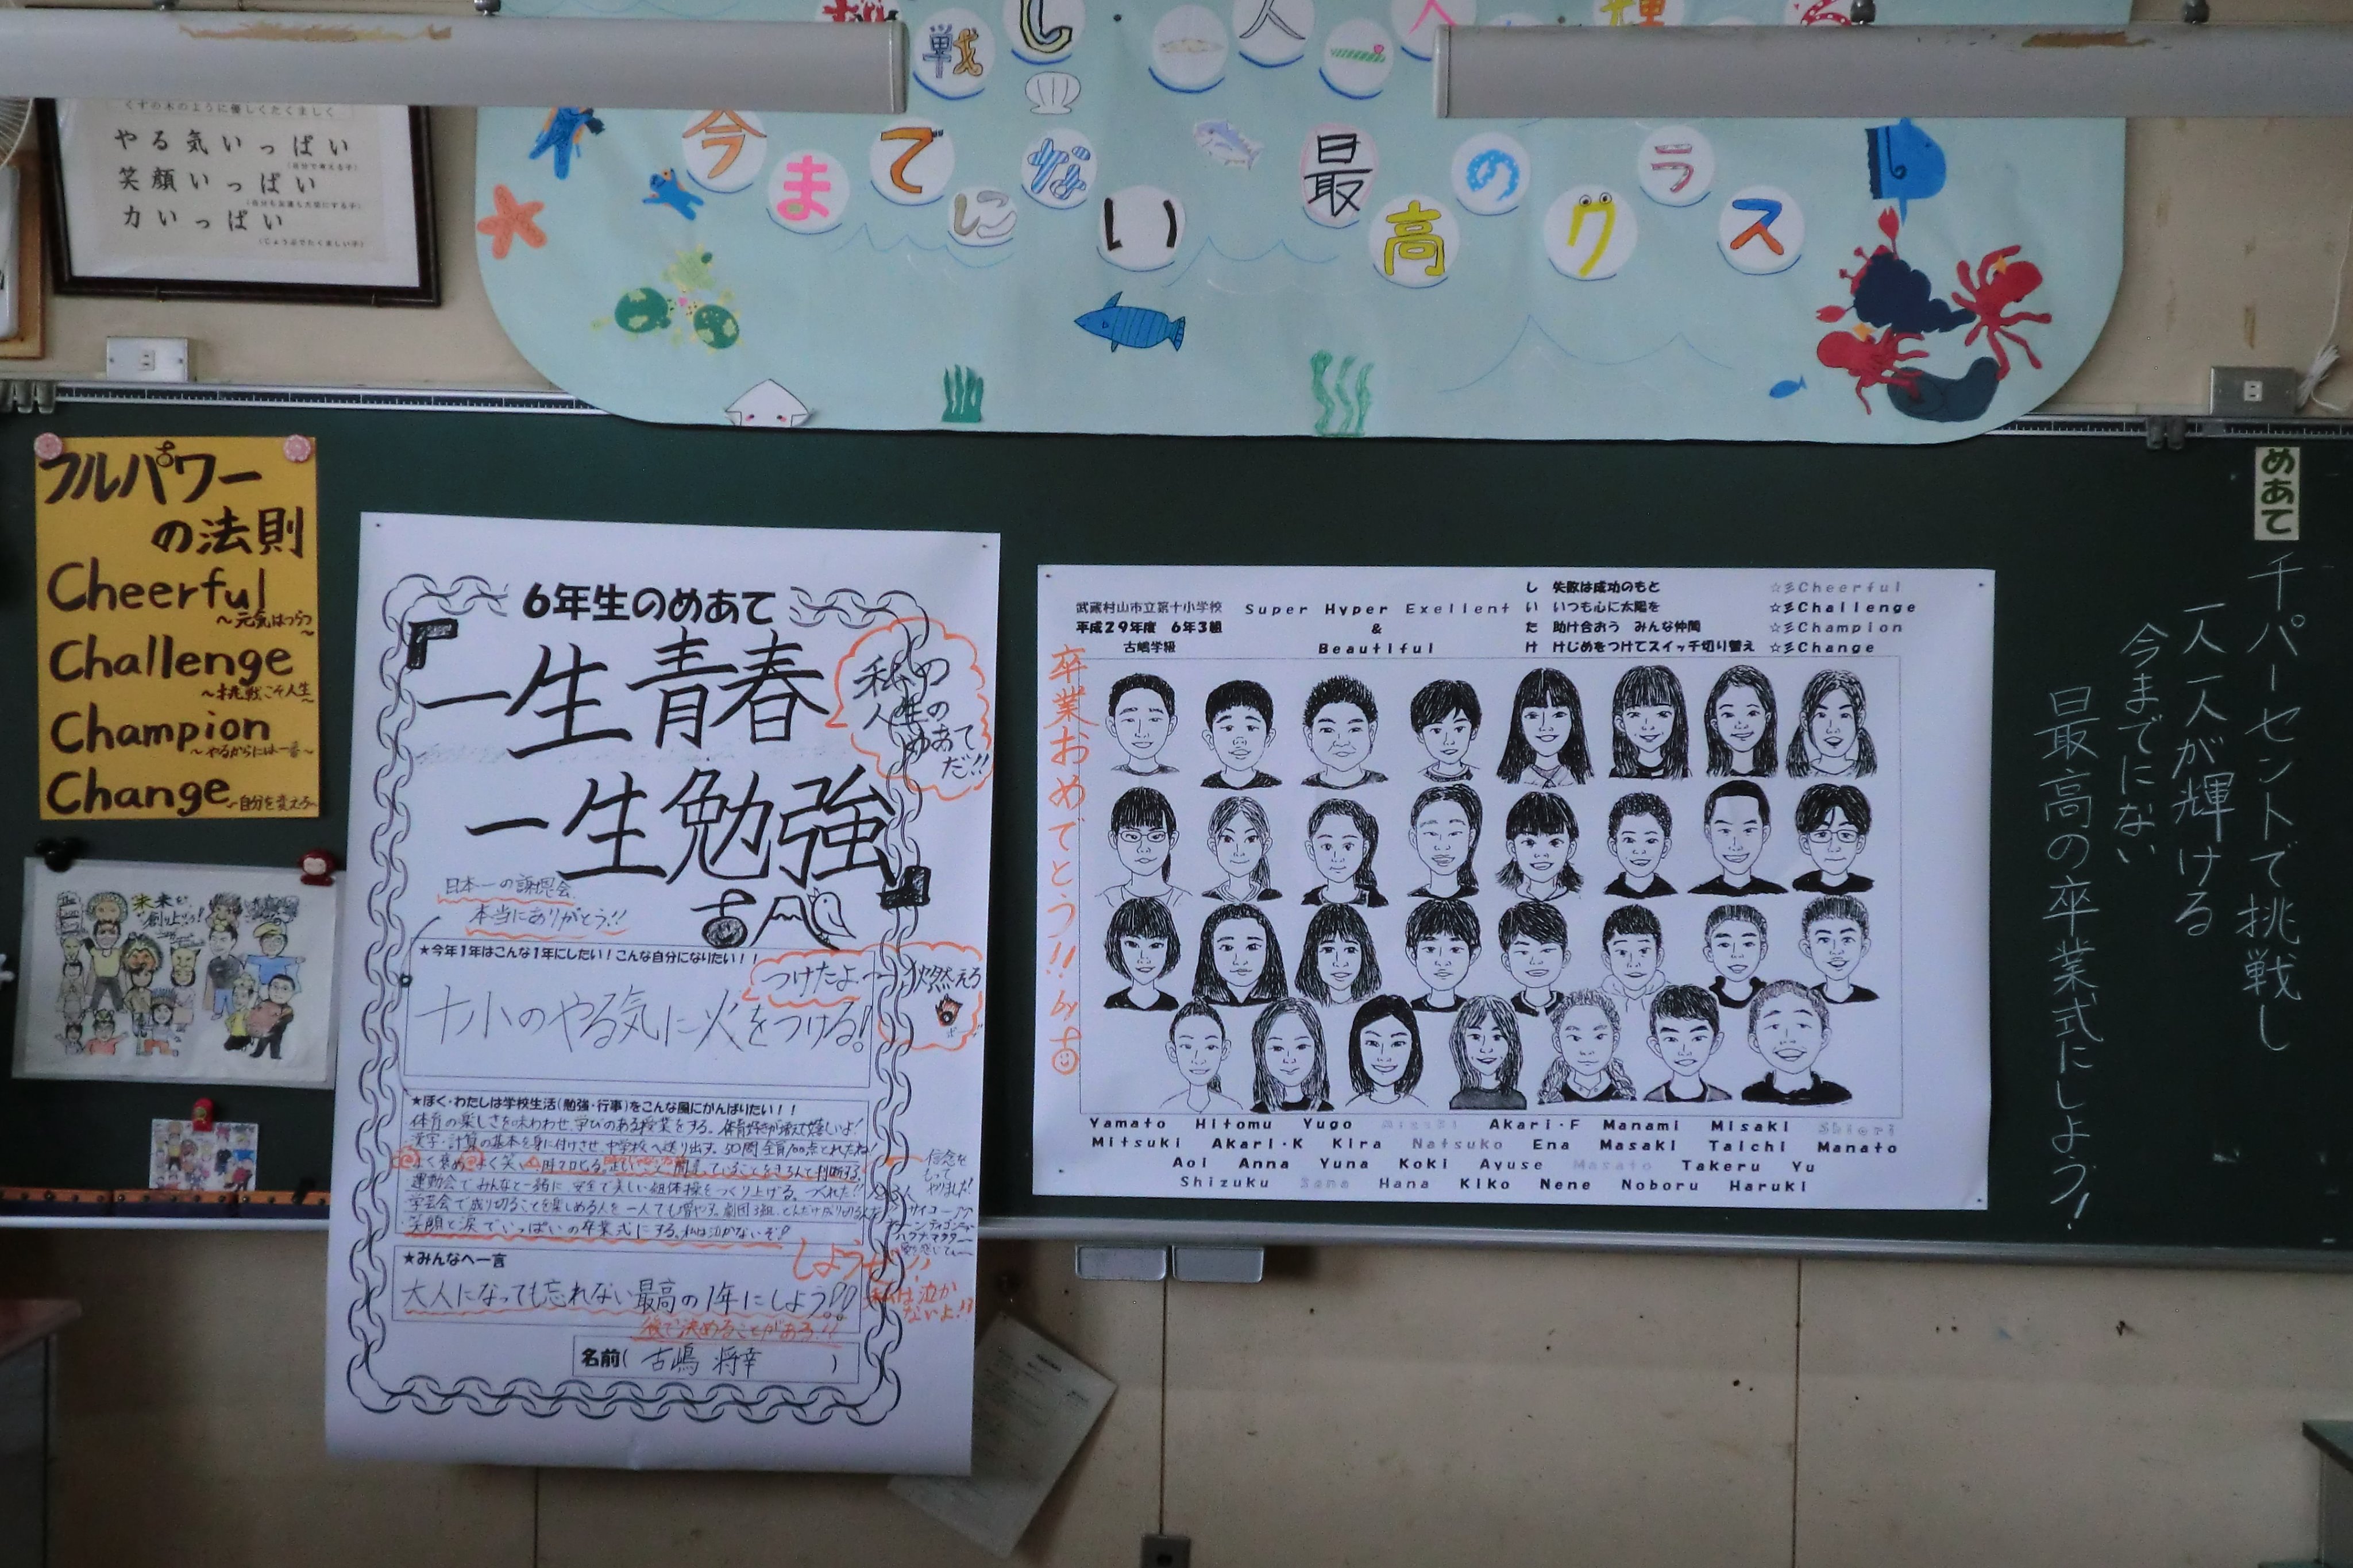 くすの木のように優しくたくましく
やる気いっぱい
笑顔いっぱい
力いっぱい
戦し
今までにない最高のクラス
フルパワー
の法則
Cheerful
～元気はつらつ～
Challenge
～挑戦こそ人生～
Champion
～やるからには一番～
Change
～自分を変えろ～
未来を
創り上げろ!
6年生のめあて
「一生青春
一生勉強」
私の
人生の
めあて
だ!!
日本一の謝恩会
本当にありがとう!!
★今年1年はこんな1年にしたい!こんな自分になりたい!!
つけたよ
燃えろ
十小のやる気に火をつける!
★ぼく・わたしは学校生活(勉強・行事)をこんな風にがんばりたい!!
体育の楽しさを味わわせ、学びのある授業をする。
漢字・計算の基本を身に付けさせ、中学校へ送り出す。50問全員100点とれたね!
運動会でみんなと一緒に、安全で美しい組体操をつくり上げる。
学芸会で成り切ることを楽しめる人を一人でも増やす。
笑顔と涙でいっぱいの卒業式にする。私は泣かないぞ!
信念を
もって
やりました!
★みんなへ一言
大人になっても忘れない最高の1年にしよう!!
私は泣か
ないよ!!
後で決めることがある!!
名前( 古嶋 将幸 )
武蔵村山市立第十小学校
平成29年度 6年3組
古嶋学級
Super Hyper Exellent
&
Beautiful
し 失敗は成功のもと
い いつも心に太陽を
た 助け合おう みんな仲間
け けじめをつけてスイッチ切り替え
☆彡Cheerful
☆彡Challenge
☆彡Champion
☆彡Change
卒業おめでとう!! by 古
Yamato Hitomu Yugo Misaki Akari・F Manami Misaki Shiori
Mitsuki Akari・K Kira Natsuko Ena Masaki Taichi Manato
Aoi Anna Yuna Koki Ayuse Masato Takeru Yu
Shizuku Sana Hana Kiko Nene Noboru Haruki
めあて
千パーセントで挑戦し
一人一人が輝ける
今までにない
最高の卒業式にしよう!